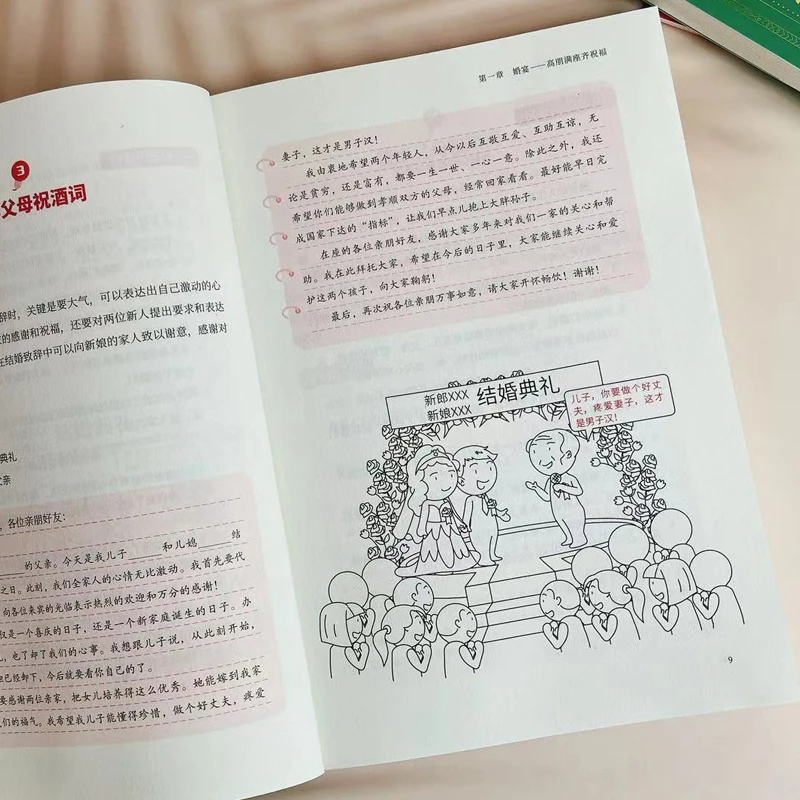 3
父母祝酒词
辞时，关键是要大气，可以表达出自己激动的心
的感谢和祝福，还要对两位新人提出要求和表达
在结婚致辞中可以向新娘的家人致以谢意，感谢对
典礼
父亲
，各位亲朋好友：
的父亲。今天是我儿子______和儿媳______结
之日。此刻，我们全家人的心情无比激动。我首先要代
向各位来宾的光临表示热烈的欢迎和万分的感谢！
是一个喜庆的日子，还是一个新家庭诞生的日子。办
，也了却了我们的心事。我想跟儿子说，从此刻开始，
已经卸下，今后就要看你自己的了。
要感谢两位亲家，把女儿培养得这么优秀。她能嫁到我家
们的福气。我希望我儿子能懂得珍惜，做个好丈夫，疼爱
第一章 婚宴——高朋满座齐祝福
妻子，这才是男子汉！
我由衷地希望两个年轻人，从今以后互敬互爱、互助互谅，无
论是贫穷，还是富有，都要一生一世、一心一意。除此之外，我还
希望你们能够做到孝顺双方的父母，经常回家看看。最好能早日完
成国家下达的“指标”，让我们早点儿抱上大胖孙子。
在座的各位亲朋好友，感谢大家多年来对我们一家的关心和帮
助。我在此拜托大家，希望在今后的日子里，大家能继续关心和爱
护这两个孩子，向大家鞠躬！
最后，再次祝各位亲朋万事如意，请大家开怀畅饮！谢谢！
新郎XXX
新娘XXX
结婚典礼
儿子，你要做个好丈
夫，疼爱妻子，这才
是男子汉！
9